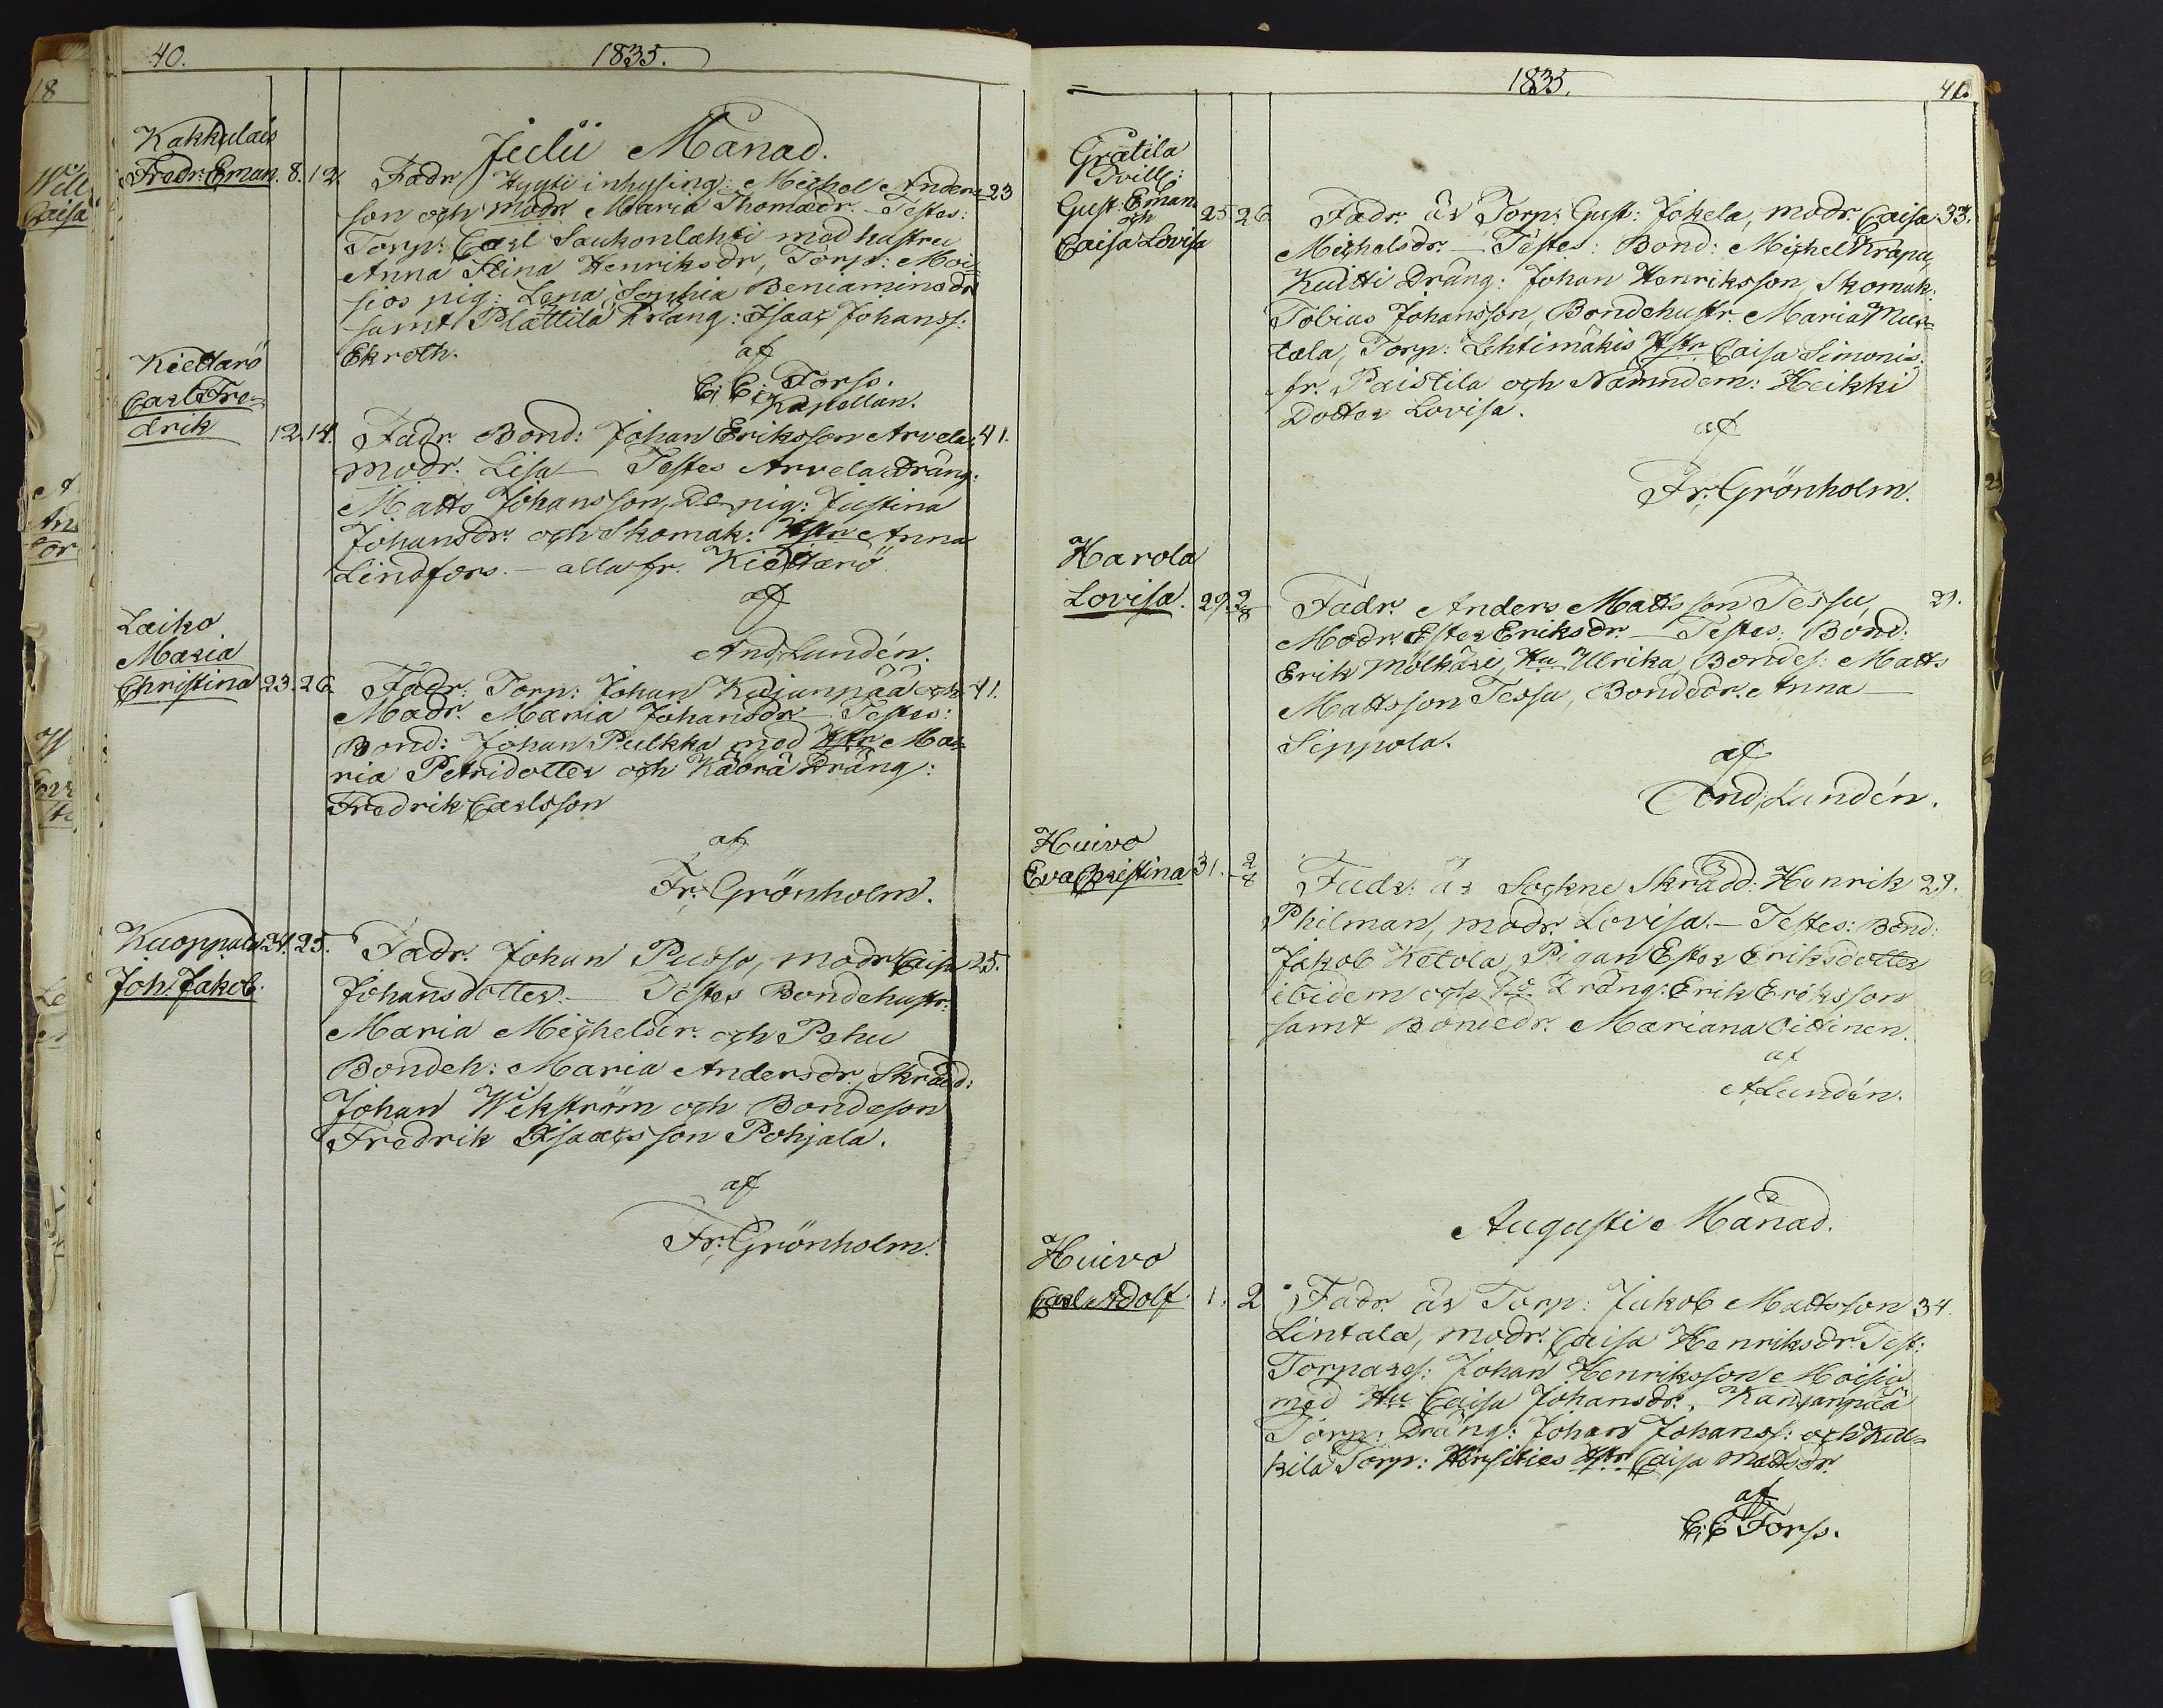 40.
1835.
Julii Månad.
Kakkulais
Fredr: Eman. 8. 12. Fadr. Hyyti inhysing: Michel Anders 23
son och modr. Maria Thomædr. Testes:
Torp: Carl Saukonlahti med hustru
Anna Stina Henriksdr, Torp: Moi-
sios pig: Lena Sophia Beniaminsdr
samt Plättilä dräng: Isaac Johanss:
Ekroth.
af
C: C: Forss.
Kapellan.
Kiettarö
Carl Fre-
drik 12. 14. Fadr. Bond: Johan Eriksson Arvela, 41.
modr. Lisa — Testes Arvela Dräng:
Matts Johansson, Do pig: Justina
Johansdr. och Skomak: Hstr Anna
Lindfors. — alla fr. Kiettarö
af
And. Lundén.
Laiko
Maria
Christina 23. 26. Fadr: Torp: Johan Kujanpää och 41.
Modr. Maria Johansdr — Testes:
Bond: Johan Pulkka med Hstr Ma-
ria Petridotter och Käärä Dräng:
Fredrik Carlsson
af
Fr. Grönholm.
Kuoppala 24. 25. Fadr. Johan Pusso, modr Caisa 25.
Joh. Jakob. Johansdotter. — Testes Bondehustr:
Maria Michelsdr. och Pehu
Bondeh: Maria Andersdr., Skrädd:
Johan Wikström och Bondeson
Fredrik Isaacsson Pohjala.
af
Fr. Grönholm.
1835.
41.
Grätila
Tvill:
Gust. Eman
och 25 26 Fadr. är Torp: Gust: Jokela, modr. Caisa 33.
Caisa Lovisa Michelsdr. — Testes: Bond: Michel Krapu,
Kuitti Dräng: Johan Henriksson, Skomak:
Tobias Johansson, Bondehustr. Maria Mus-
tala, Torp: Lehtimäkis Hstr Caisa Simonis
fr. Paistila och Nämndem: Heikki
Dotter Lovisa.
af
Fr. Grönholm.
Harola
Lovisa. 29. 2/8 Fadr. Anders Mattsson Tessu, 21.
Modr. Ester Eriksdr. — Testes: Bond:
Erik Mölkäri, Hu Ulrika, Bondes: Matts
Mattsson Tessu, Bondedr. Anna —
Sippola.
af
And. Lundén.
Huivo
Eva Christina 31. 2/8 Fadr: är Sockne Skrädd: Henrik 29.
Philman, modr. Lovisa. — Testes: Bond:
Jakob Ketola, Pigan Ester Eriksdotter
ibidem och Do Dräng: Erik Eriksson
samt Bondedr. Mariana Oittinen.
af
A Lundén.
Augusti Månad.
Huivo
Carl Adolf 1. 2 Fadr. är Torp: Jakob Mattsson 34.
Lintala, modr. Caisa Henriksdr. Test:
Torpares: Johan Henriksson Moisio
med Hu Caisa Johansdr., Kangaspää
Torp: Dräng: Johan Johans: och Kul-
kila Torp: Hstr Caisa Mattsdr.
af
C: C Forss.